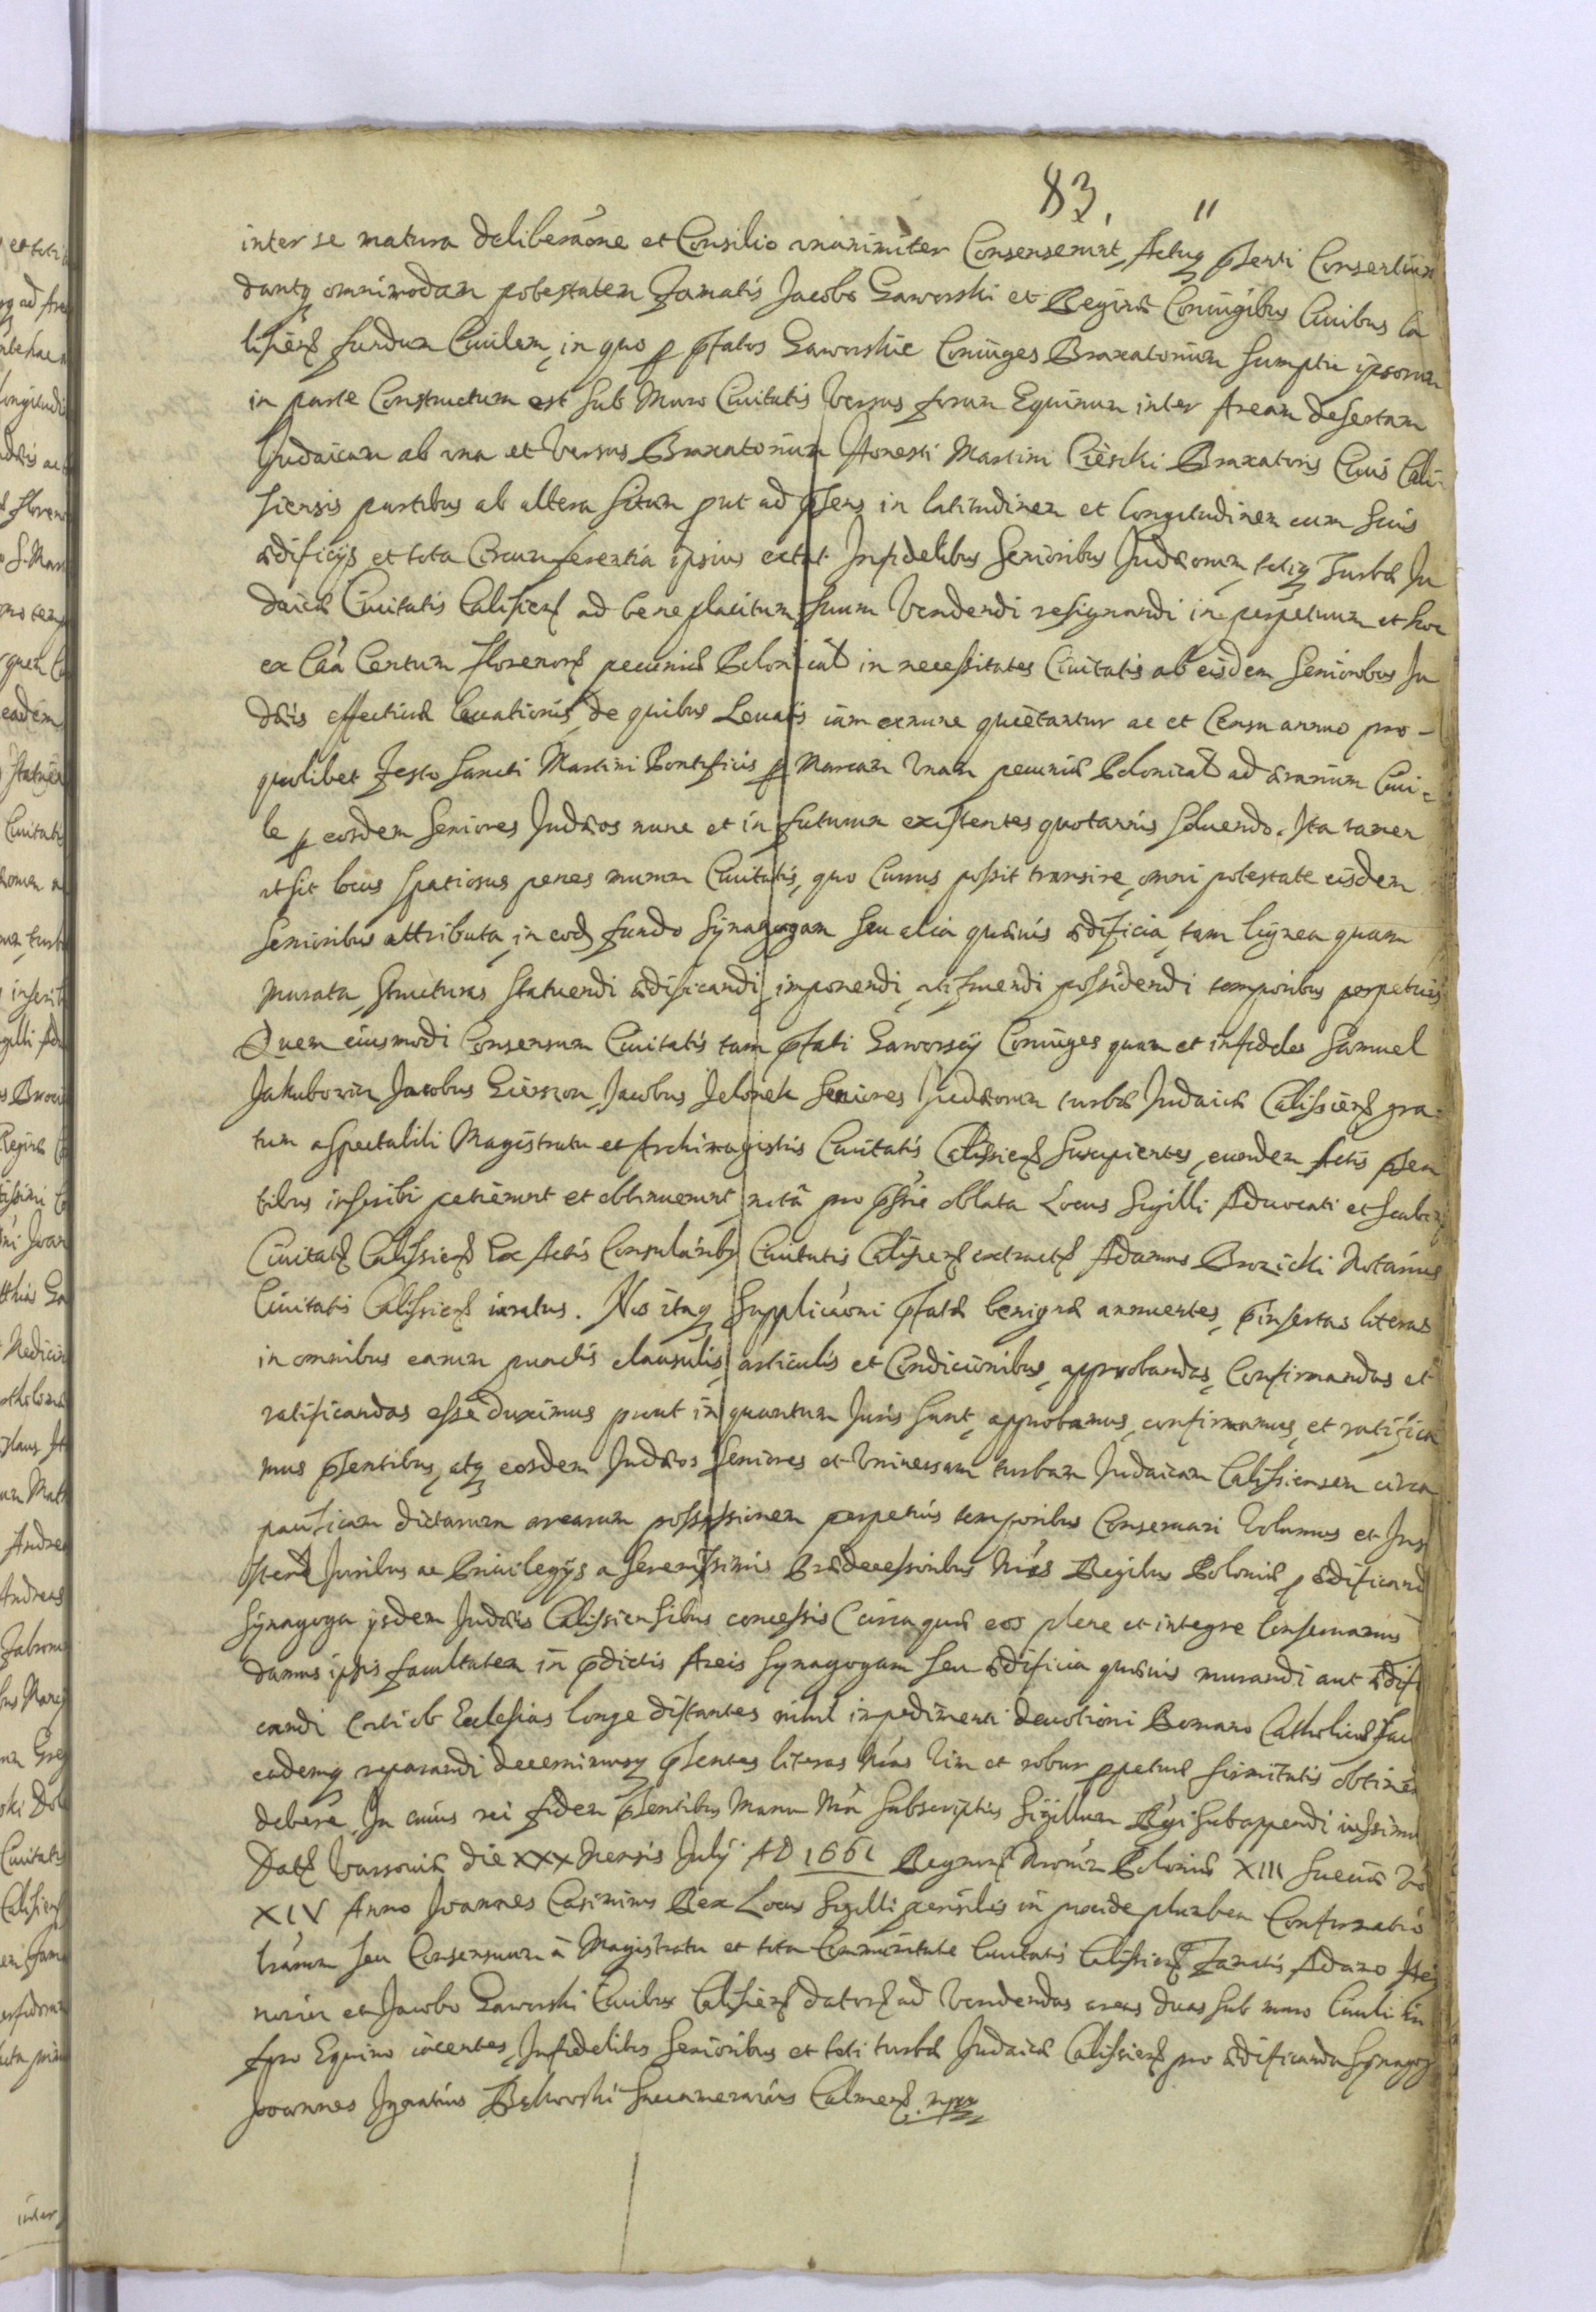 83. 11
inter se matura deliberaone et Consilio unanimiter Consenserunt, Actuq pnti Consertum
dantq omnimodam potestatem Famatis Jacobo Gaworski et Reginæ Coniugibus Ciuibus Ca
lisien fundum Ciuilem, in quo p pfatos Gaworskie Coniuges Braxatorium sumptu ipsorum
in parte Constructum est sub Muro Ciuitatis Versus forum Equinum inter Aream desertam
Judaicam ab una et Versus Braxatorium Honesti Martini Ciesicki Braxatoris Ciuis Cali-
siensis partibus ab altera situm put ad psens in latitudinem et longitudinem cum suis
ædificijs et tota Circumferentia ipsius extat Infidelibus Senioribus Judæorum, totiq Turbæ Ju
daicæ Ciuitatis Calisien ad bene placitum suum Vendendi resignandi in perpetuum et hoc
ex Caa Centum florenor pecuniæ Polonicalis in necessitates Ciuitatis ab eisdem Senioribus Ju
dæis effectiuæ leuationis, de quibus Leuatis iam exnunc quietantur ac et Censu annuo pro-
quolibet Festo Sancti Martini Pontificis p Marcam Vnam pecuniæ Polonicalis ad ærarium Ciui-
le p eosdem Seniores Judæos nunc et in futurum existentes quotannis soluendo. Ita tamen
ut sit locus spatiosus penes murum Ciuitatis, quo Currus possit transire, omni potestate eisdem
Senioribus attributa, in eod fundo Synagogam seu alia quæuis ædificia, tam lignea quam
murata, structuras statuendi ædificandi, imponendi, utifruendi possidendi temporibus perpetuis
Quem eiusmodi Consensum Ciuitatis tam pfati Gaworscy Coniuges quam et infideles Samuel
Jakubowicz Jacobus Gierszon, Jacobus Jelonek Seniores Judæorum turbæ Judaicæ Calissien gra-
tum a Spectabili Magistratu et Archimagistris Ciuitatis Calissien Suscipientes, eundem Actis psen
tibus inscribi petierunt et obtinuerunt pro oblata Locus Sigilli Aduocati et Scabin
Ciuitat Calissien Ex Actis Consularibq Ciuitatis Calisien extract Adamus Notarius
Ciuitatis Calissien iuratus. Nos itaq Supplicaoni pfatæ benigne annuentes, pinsertas literas
in omnibus earum punctis clausulis, articulis et Condicionibus, approbandas, Confirmandas et
ratificandas esse duximus prout in quantum Juris sunt, approbamus, confirmamus, et ratifica
mus psentibus, atq eosdem Judæos Seniores et Vniuersam turbam Judaicam Calissiensem circa
pacificam dictarum arearum possessionem perpetuis temporibus Conseruari Volumus et
Juribus ac Priuilegijs a Serenissimis Prædecessoribus Nris Regibus Poloniæ p ædificand
Synagoga ijsdem Judæis Calissiensibus concessis Circa quæ eos plene et integre Conseruamus
damus ipsis facultatem in pdictis Areis Synagogam seu ædificia quæuis murandi aut ædifi
candi Ecclesias longe distantes nihil impedimenti deuotioni Romano Catholicæ
eademq reparandi decernimusq psentes literas Nras Vim et robur ppetuæ firmitatis obtinere
debere. In cuius rei fidem psentibus Manu Nra Subscriptis Sigillum Regni subappendi iussimus
Dat Varsouiæ die XXX Mensis July AD 1661 Regnor Nrorum Poloniæ XIII Sueciæ Vo
XIV Anno Joannes Casimirus Rex Locus Sigilli pensilis in pixide plumbea Confirmatio
lrarum seu Consensuum a Magistratu et tota Communitate Ciuitatis Calissien Famatis Adamo
et Jacobo Gaworski Ciuibus Calisien dator ad Vendendas areas duas sub muro Ciuili in
foro Equino iacentes, Infidelibus Senioribus et toti turbæ Judaicæ Calissien pro ædificanda Synagog
Joannes Ignatius Bąkowski Succamerarius Culmen mpr